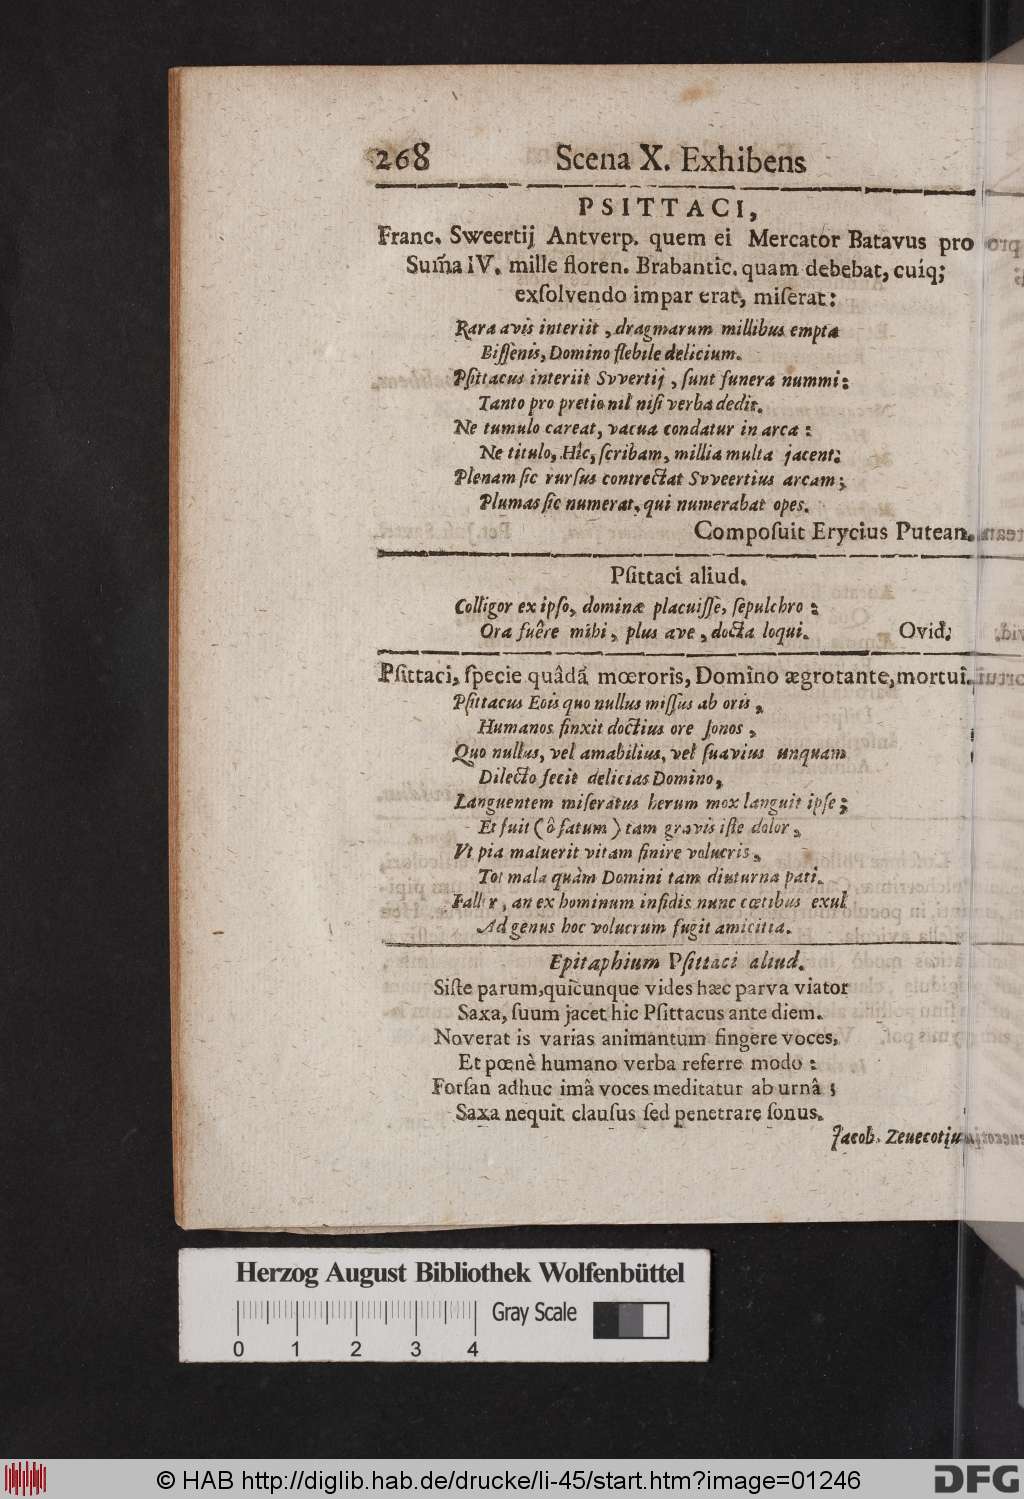 268 Scena X. Exhibens
PSITTACI,
Franc. Sweertij Antverp. quem ei Mercator Batavus pro
Sum̃a IV. mille floren. Brabantic. quam debebat, cuíq;
exſolvendo impar erat, miſerat:
Rara avis interiit, dragmarum millibus empta
Biſſenis, Domino flebile delicium.
Pſittacus interiit Svvertij, ſunt funera nummi:
Tanto pro pretio nil niſi verba dedit.
Ne tumulo careat, vacua condatur in arca:
Ne titulo, Hîc, ſcribam, millia multa jacent:
Plenam ſic rurſus contrectat Svveertius arcam;
Plumas ſic numerat, qui numerabat opes.
Compoſuit Erycius Putean.
Pſittaci aliud.
Colligor ex ipſo, dominæ placuiſſe, ſepulchro:
Ora fuêre mihi, plus ave, docta loqui. Ovid;
Pſittaci, ſpecie quâdá mœroris, Domino ægrotante, mortui.
Pſittacus Eois quo nullus miſſus ab oris,
Humanos finxit doctius ore ſonos,
Quo nullus, vel amabilius, vel ſuavius unquam
Dilecto fecit delicias Domino,
Languentem miſeratus herum mox languit ipſe;
Et fuit (ô fatum) tam gravis iſte dolor,
Vt pia maluerit vitam finire volucris,
Tot mala quàm Domini tam diuturna pati.
Fallor, an ex hominum infidis nunc cœtibus exul
Ad genus hoc volucrum fugit amicitia.
Epitaphium Pſittaci aliud.
Siſte parum, quicunque vides hæc parva viator
Saxa, ſuum jacet hic Pſittacus ante diem.
Noverat is varias animantum fingere voces,
Et pœnè humano verba referre modo:
Forſan adhuc imâ voces meditatur ab urnâ;
Saxa nequit clauſus ſed penetrare ſonus.
Jacob. Zeuecotiu
Herzog August Bibliothek Wolfenbüttel
Gray Scale
0 1 2 3 4
© HAB http://diglib.hab.de/drucke/li-45/start.htm?image=01246
DFG